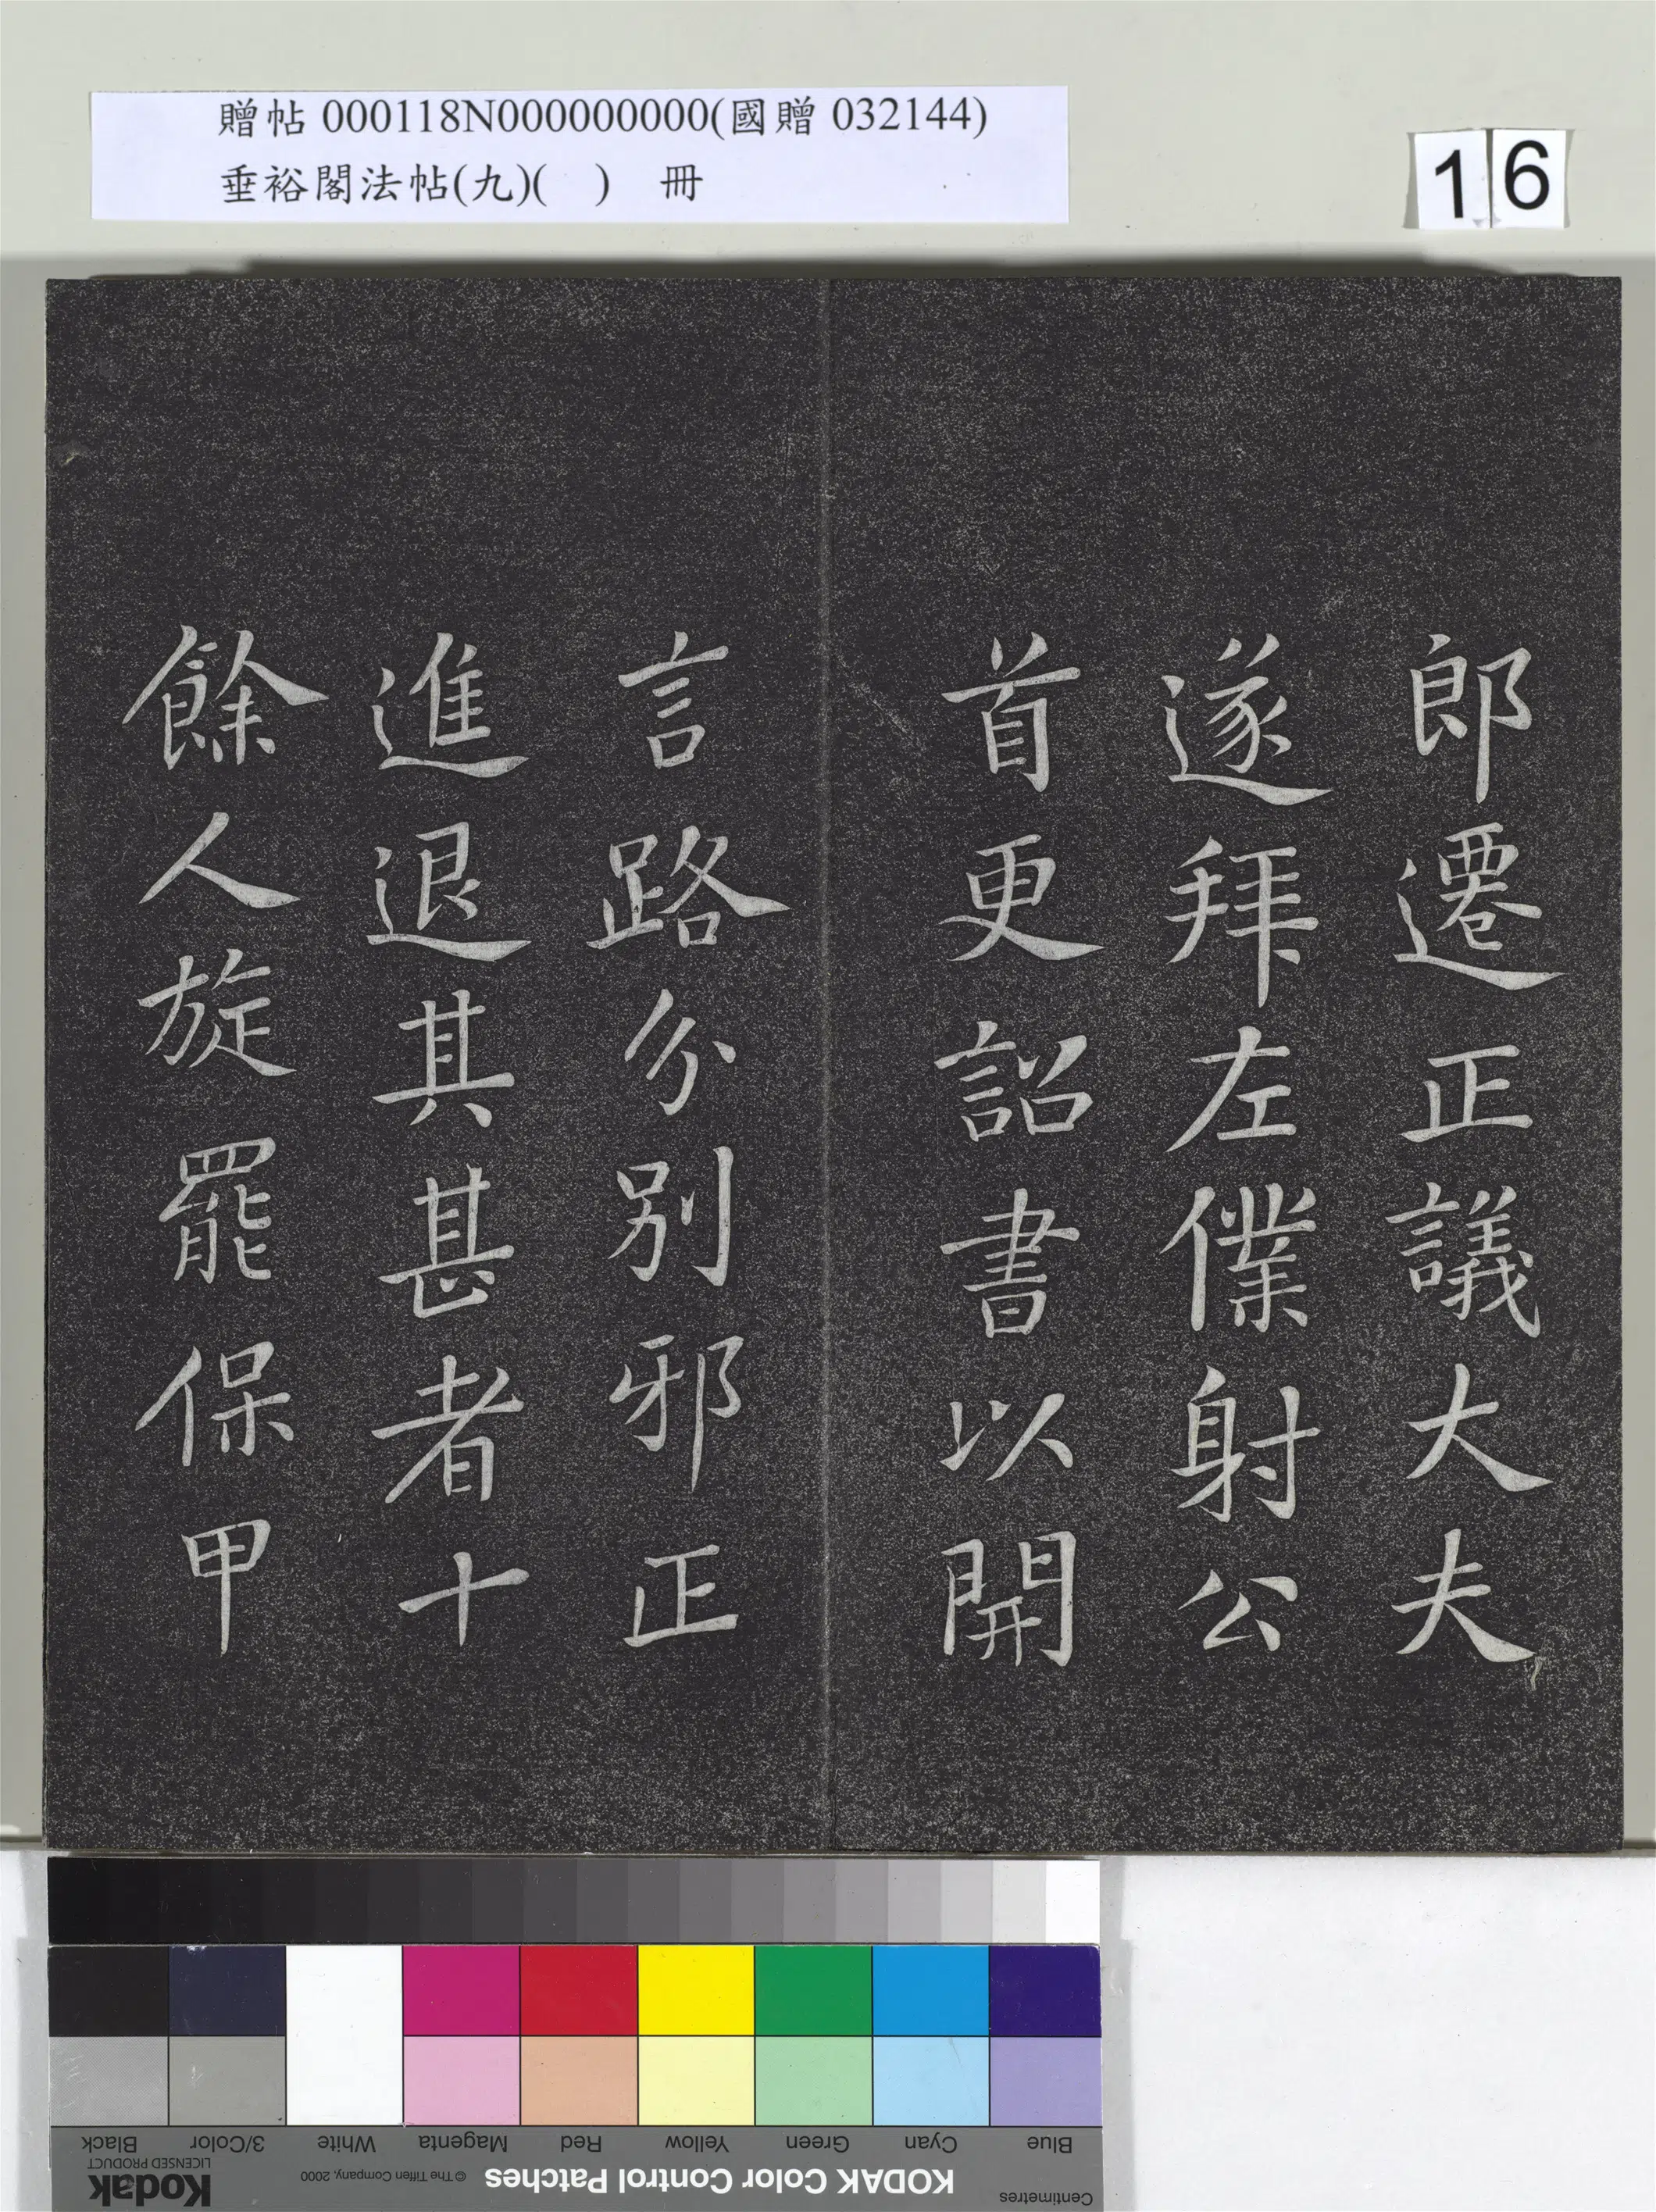 贈帖 000118N000000000(國贈 032144)
垂裕閣法帖(九)(　)　冊
16
郎遷正議大夫
遂拜左僕射公
首更詔書以開
言路分別邪正
進退其甚者十
餘人旋罷保甲
Blue Cyan Green Yellow Red Magenta White 3/Color Black
Centimetres KODAK Color Control Patches © The Tiffen Company, 2000 Kodak
LICENSED PRODUCT